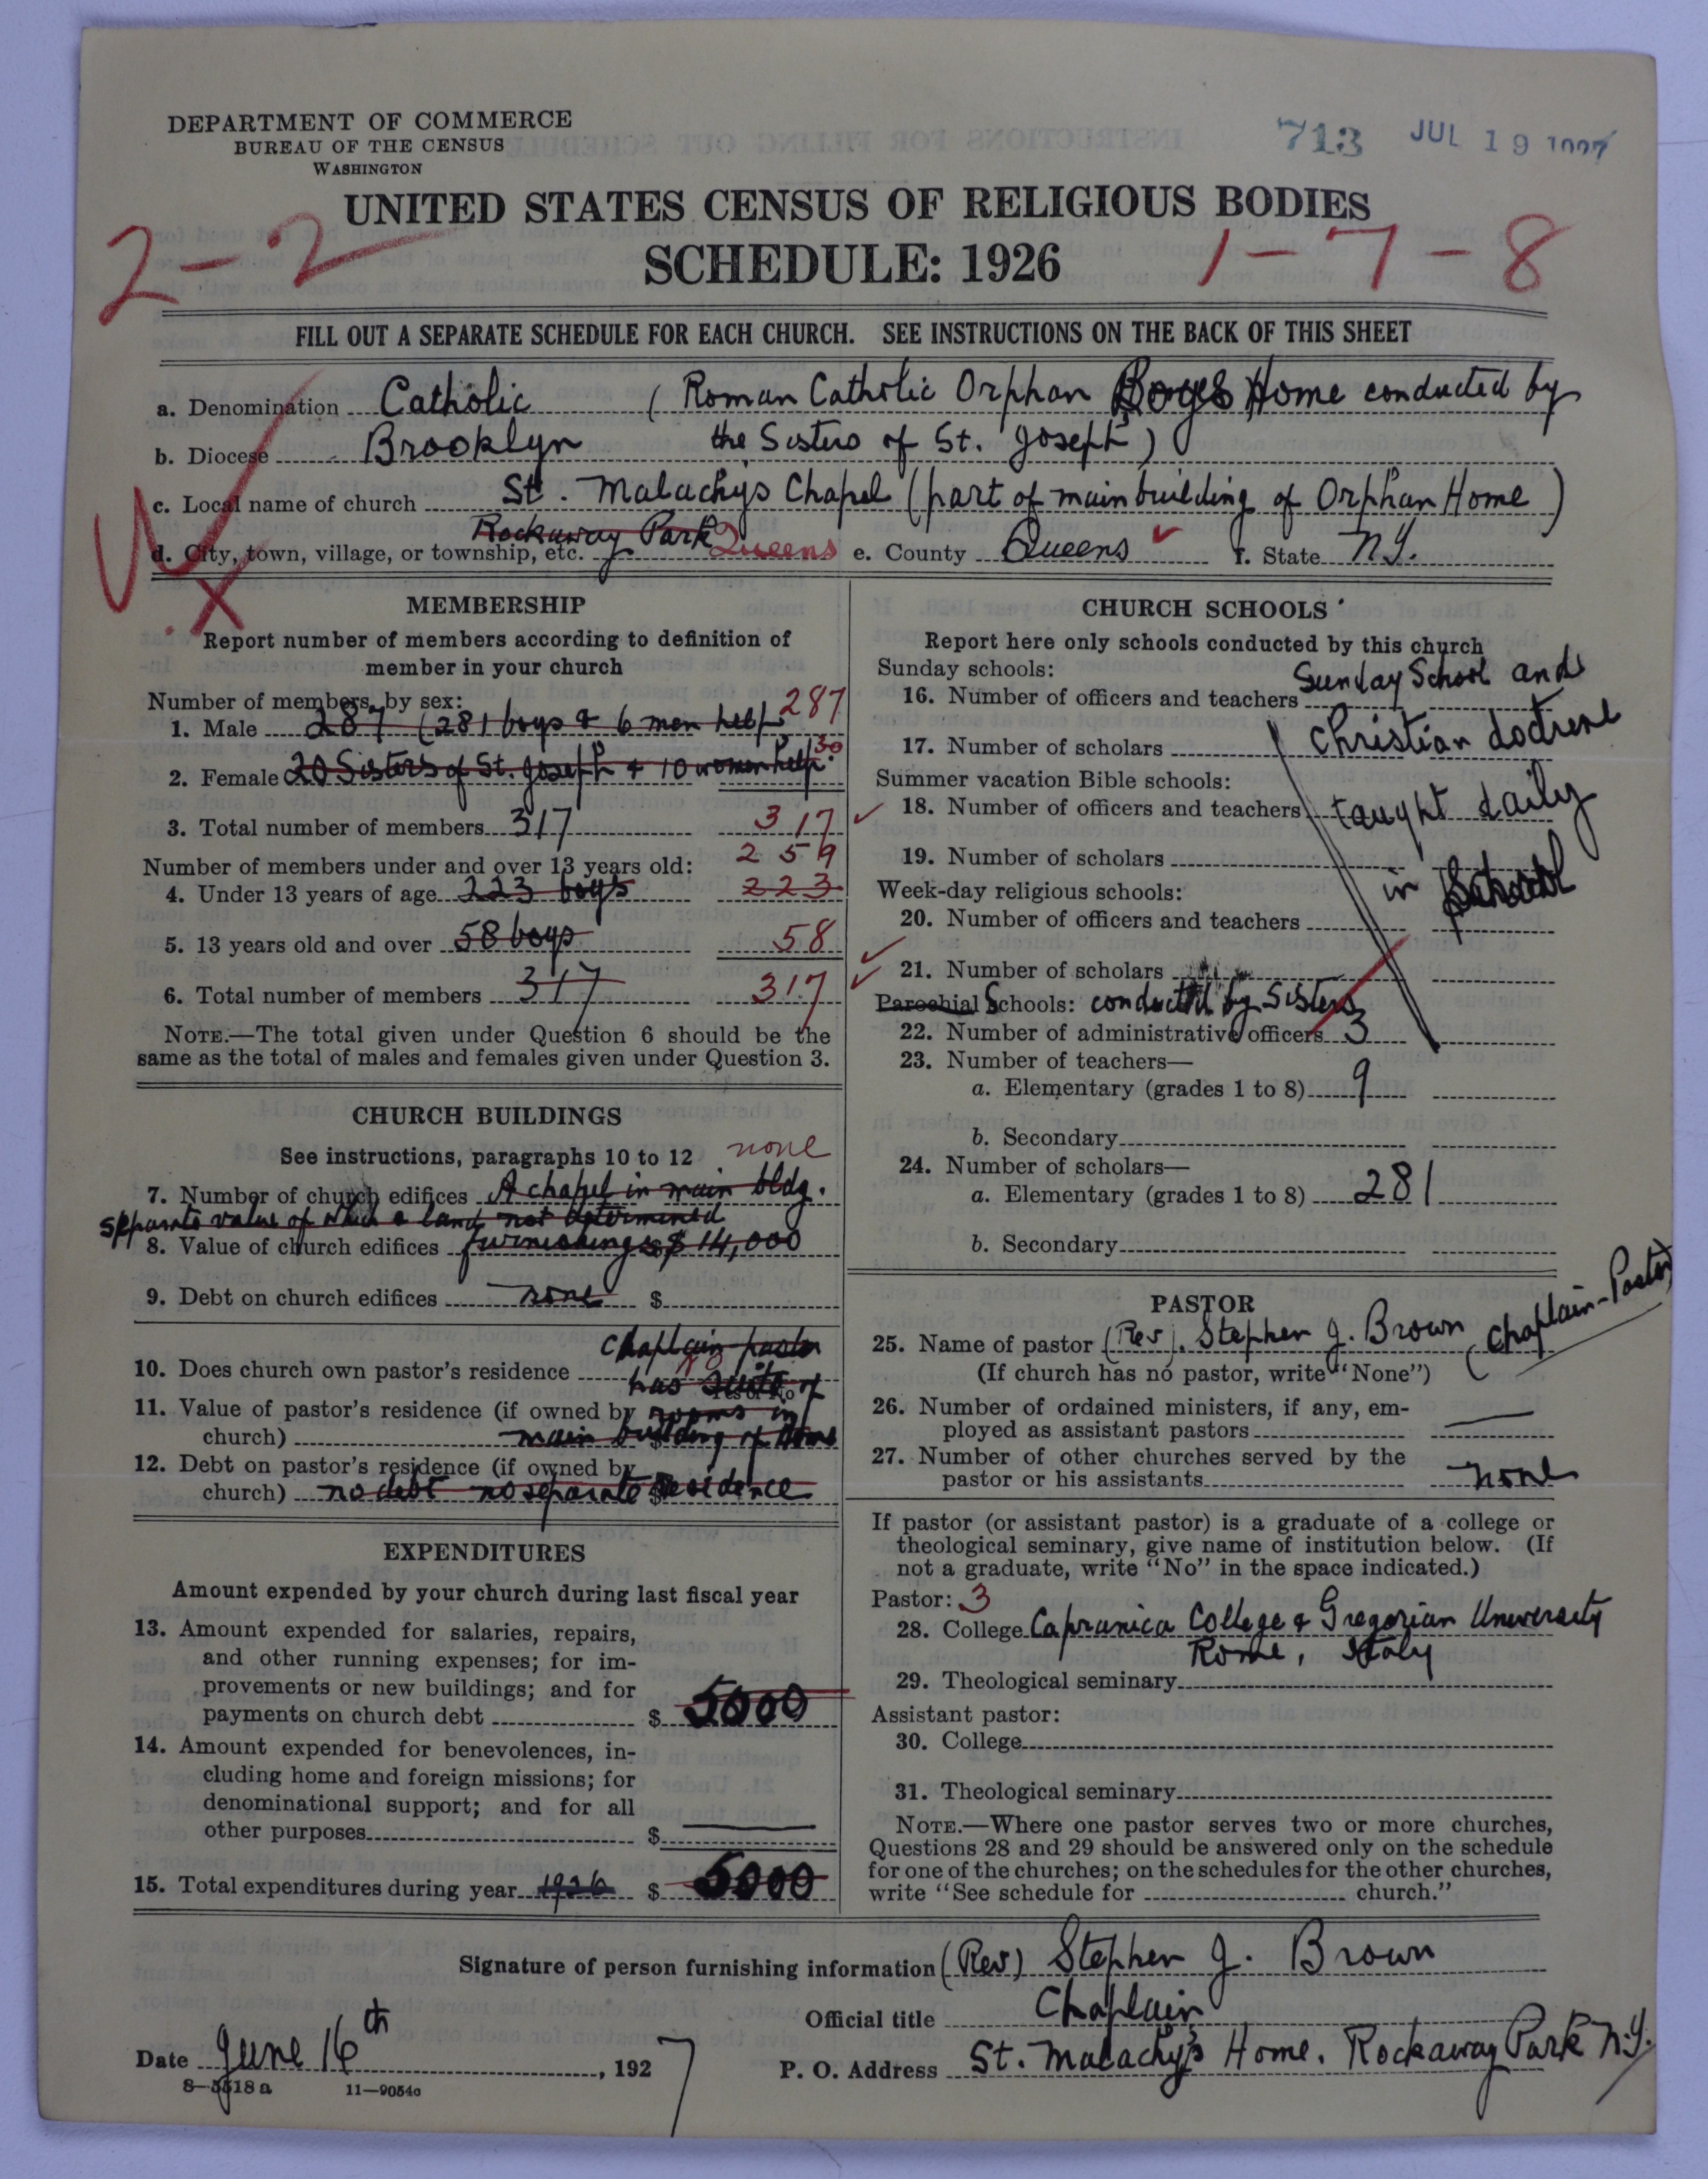 DEPARTMENT OF COMMERCE
BUREAU OF THE CENSUS
WASHINGTON
713 JUL 19 1927
UNITED STATES CENSUS OF RELIGIOUS BODIES
SCHEDULE: 1926
2-2 1-7-8
FILL OUT A SEPARATE SCHEDULE FOR EACH CHURCH. SEE INSTRUCTIONS ON THE BACK OF THIS SHEET
a. Denomination Catholic (Roman Catholic Orphan Boys Home conducted by
b. Diocese Brooklyn the Sisters of St. Joseph)
c. Local name of church St. Malachy's Chapel (part of main building of Orphan Home)
d. City, town, village, or township, etc. Rockaway Park Queens e. County Queens f. State N.Y.
MEMBERSHIP
Report number of members according to definition of
member in your church
Number of members, by sex:
1. Male 287 (281 boys & 6 men help 287
2. Female 20 Sisters of St. Joseph & 10 women help 30
3. Total number of members 317 317
Number of members under and over 13 years old: 259
4. Under 13 years of age 223 boys 223
5. 13 years old and over 58 boys 58
6. Total number of members 317 317
NOTE.—The total given under Question 6 should be the
same as the total of males and females given under Question 3.
CHURCH BUILDINGS
See instructions, paragraphs 10 to 12 none
7. Number of church edifices A chapel in main bldg.
separate value of which & land not determined
8. Value of church edifices furnishings $ 14,000
9. Debt on church edifices none $
chaplain-pastor
10. Does church own pastor's residence No has suite of
Yes or No
11. Value of pastor's residence (if owned by rooms in
church) main building of Home $
12. Debt on pastor's residence (if owned by
church) no debt no separate residence $
EXPENDITURES
Amount expended by your church during last fiscal year
13. Amount expended for salaries, repairs,
and other running expenses; for im-
provements or new buildings; and for
payments on church debt $ 5000
14. Amount expended for benevolences, in-
cluding home and foreign missions; for
denominational support; and for all
other purposes $
15. Total expenditures during year 1926 $ 5000
CHURCH SCHOOLS
Report here only schools conducted by this church
Sunday schools:
16. Number of officers and teachers Sunday School and
17. Number of scholars Christian doctrine
Summer vacation Bible schools:
18. Number of officers and teachers taught daily
19. Number of scholars
in School
Week-day religious schools:
20. Number of officers and teachers
21. Number of scholars
Parochial Schools: conducted by Sisters
22. Number of administrative officers 3
23. Number of teachers—
a. Elementary (grades 1 to 8) 9
b. Secondary
24. Number of scholars—
a. Elementary (grades 1 to 8) 281
b. Secondary
PASTOR
25. Name of pastor (Rev). Stephen J. Brown (Chaplain-Pastor)
(If church has no pastor, write "None")
26. Number of ordained ministers, if any, em-
ployed as assistant pastors
27. Number of other churches served by the
pastor or his assistants none
If pastor (or assistant pastor) is a graduate of a college or
theological seminary, give name of institution below. (If
not a graduate, write "No" in the space indicated.)
Pastor: 3
28. College Capranica College & Gregorian University
Rome, Italy
29. Theological seminary
Assistant pastor:
30. College
31. Theological seminary
NOTE.—Where one pastor serves two or more churches,
Questions 28 and 29 should be answered only on the schedule
for one of the churches; on the schedules for the other churches,
write "See schedule for church."
Signature of person furnishing information (Rev) Stephen J. Brown
Official title Chaplain
Date June 16th, 1927 P. O. Address St. Malachy's Home, Rockaway Park N.Y.
8—5518a 11—9054a